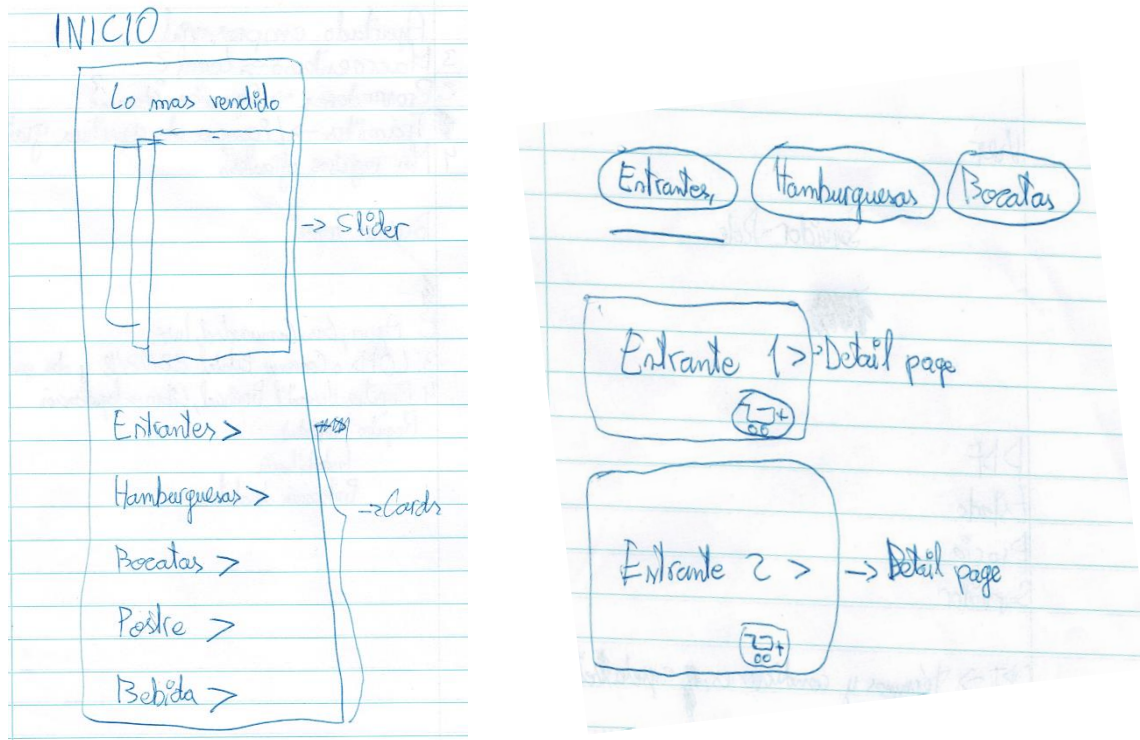 INICIO
Lo mas vendido
→ Slider
Entrantes >
Hamburguesas >
→ Cards
Bocatas >
Postre >
Bebida >
Entrantes, Hamburguesas Bocatas
Entrante 1 > → Detail page
Entrante 2 > → Detail page